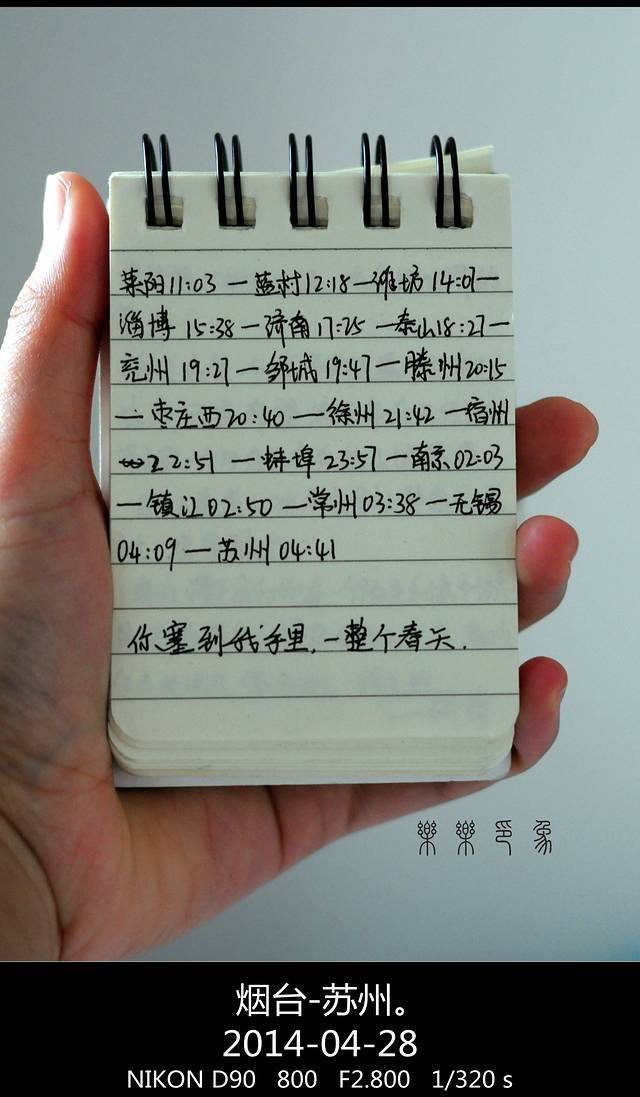 莱阳11:03 — 蓝村12:18—潍坊 14:07—
淄博 15:38 — 济南 17:25 — 泰山18:27—
兖州 19:27 — 邹城 19:47 — 滕州20:15
— 枣庄西20:40 — 徐州 21:42 — 宿州
22:51 — 蚌埠 23:57 — 南京02:03
— 镇江02:50 — 常州03:38 — 无锡
04:09 — 苏州 04:41
你塞到我手里,一整个春天.
樂樂印象
烟台-苏州。
2014-04-28
NIKON D90 800 F2.800 1/320 s